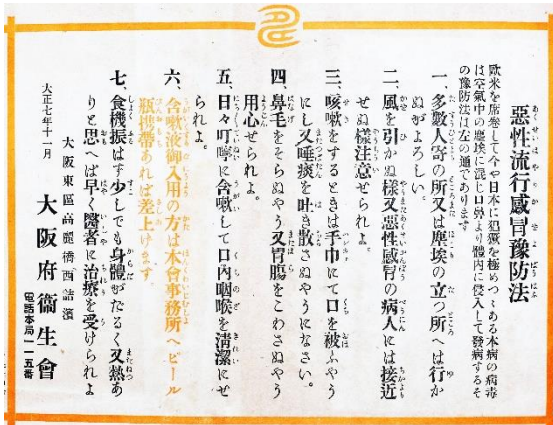 惡性流行感冒豫防法
歐米を席巻して今や日本に猖獗を極めつゝある本病の病毒
は空氣中の塵埃に混じ口鼻より體内に侵入して發病するそ
の豫防法は左の通であります
一、多數人寄の所又は塵埃の立つ所へは行か
ぬがよろしい。
二、風を引かぬ樣又惡性感冒の病人には接近
せぬ樣注意せられよ。
三、咳嗽をするときは手巾にて口を被ふやう
にし又唾痰を吐き散さぬやうになさい。
四、鼻毛をそらぬやう又胃腸をこわさぬやう
用心せられよ。
五、日々叮嚀に含嗽して口内咽喉を清潔にせ
られよ。
六、含嗽液御入用の方は本會事務所へビール
瓶携帶あれば差上けます。
七、食機振はす少しでも身體がだるく又熱あ
りと思へば早く醫者に治療を受けられよ
大正七年十一月
大阪東區高麗橋西詰濱
大阪府衞生會
電話本局一一五番